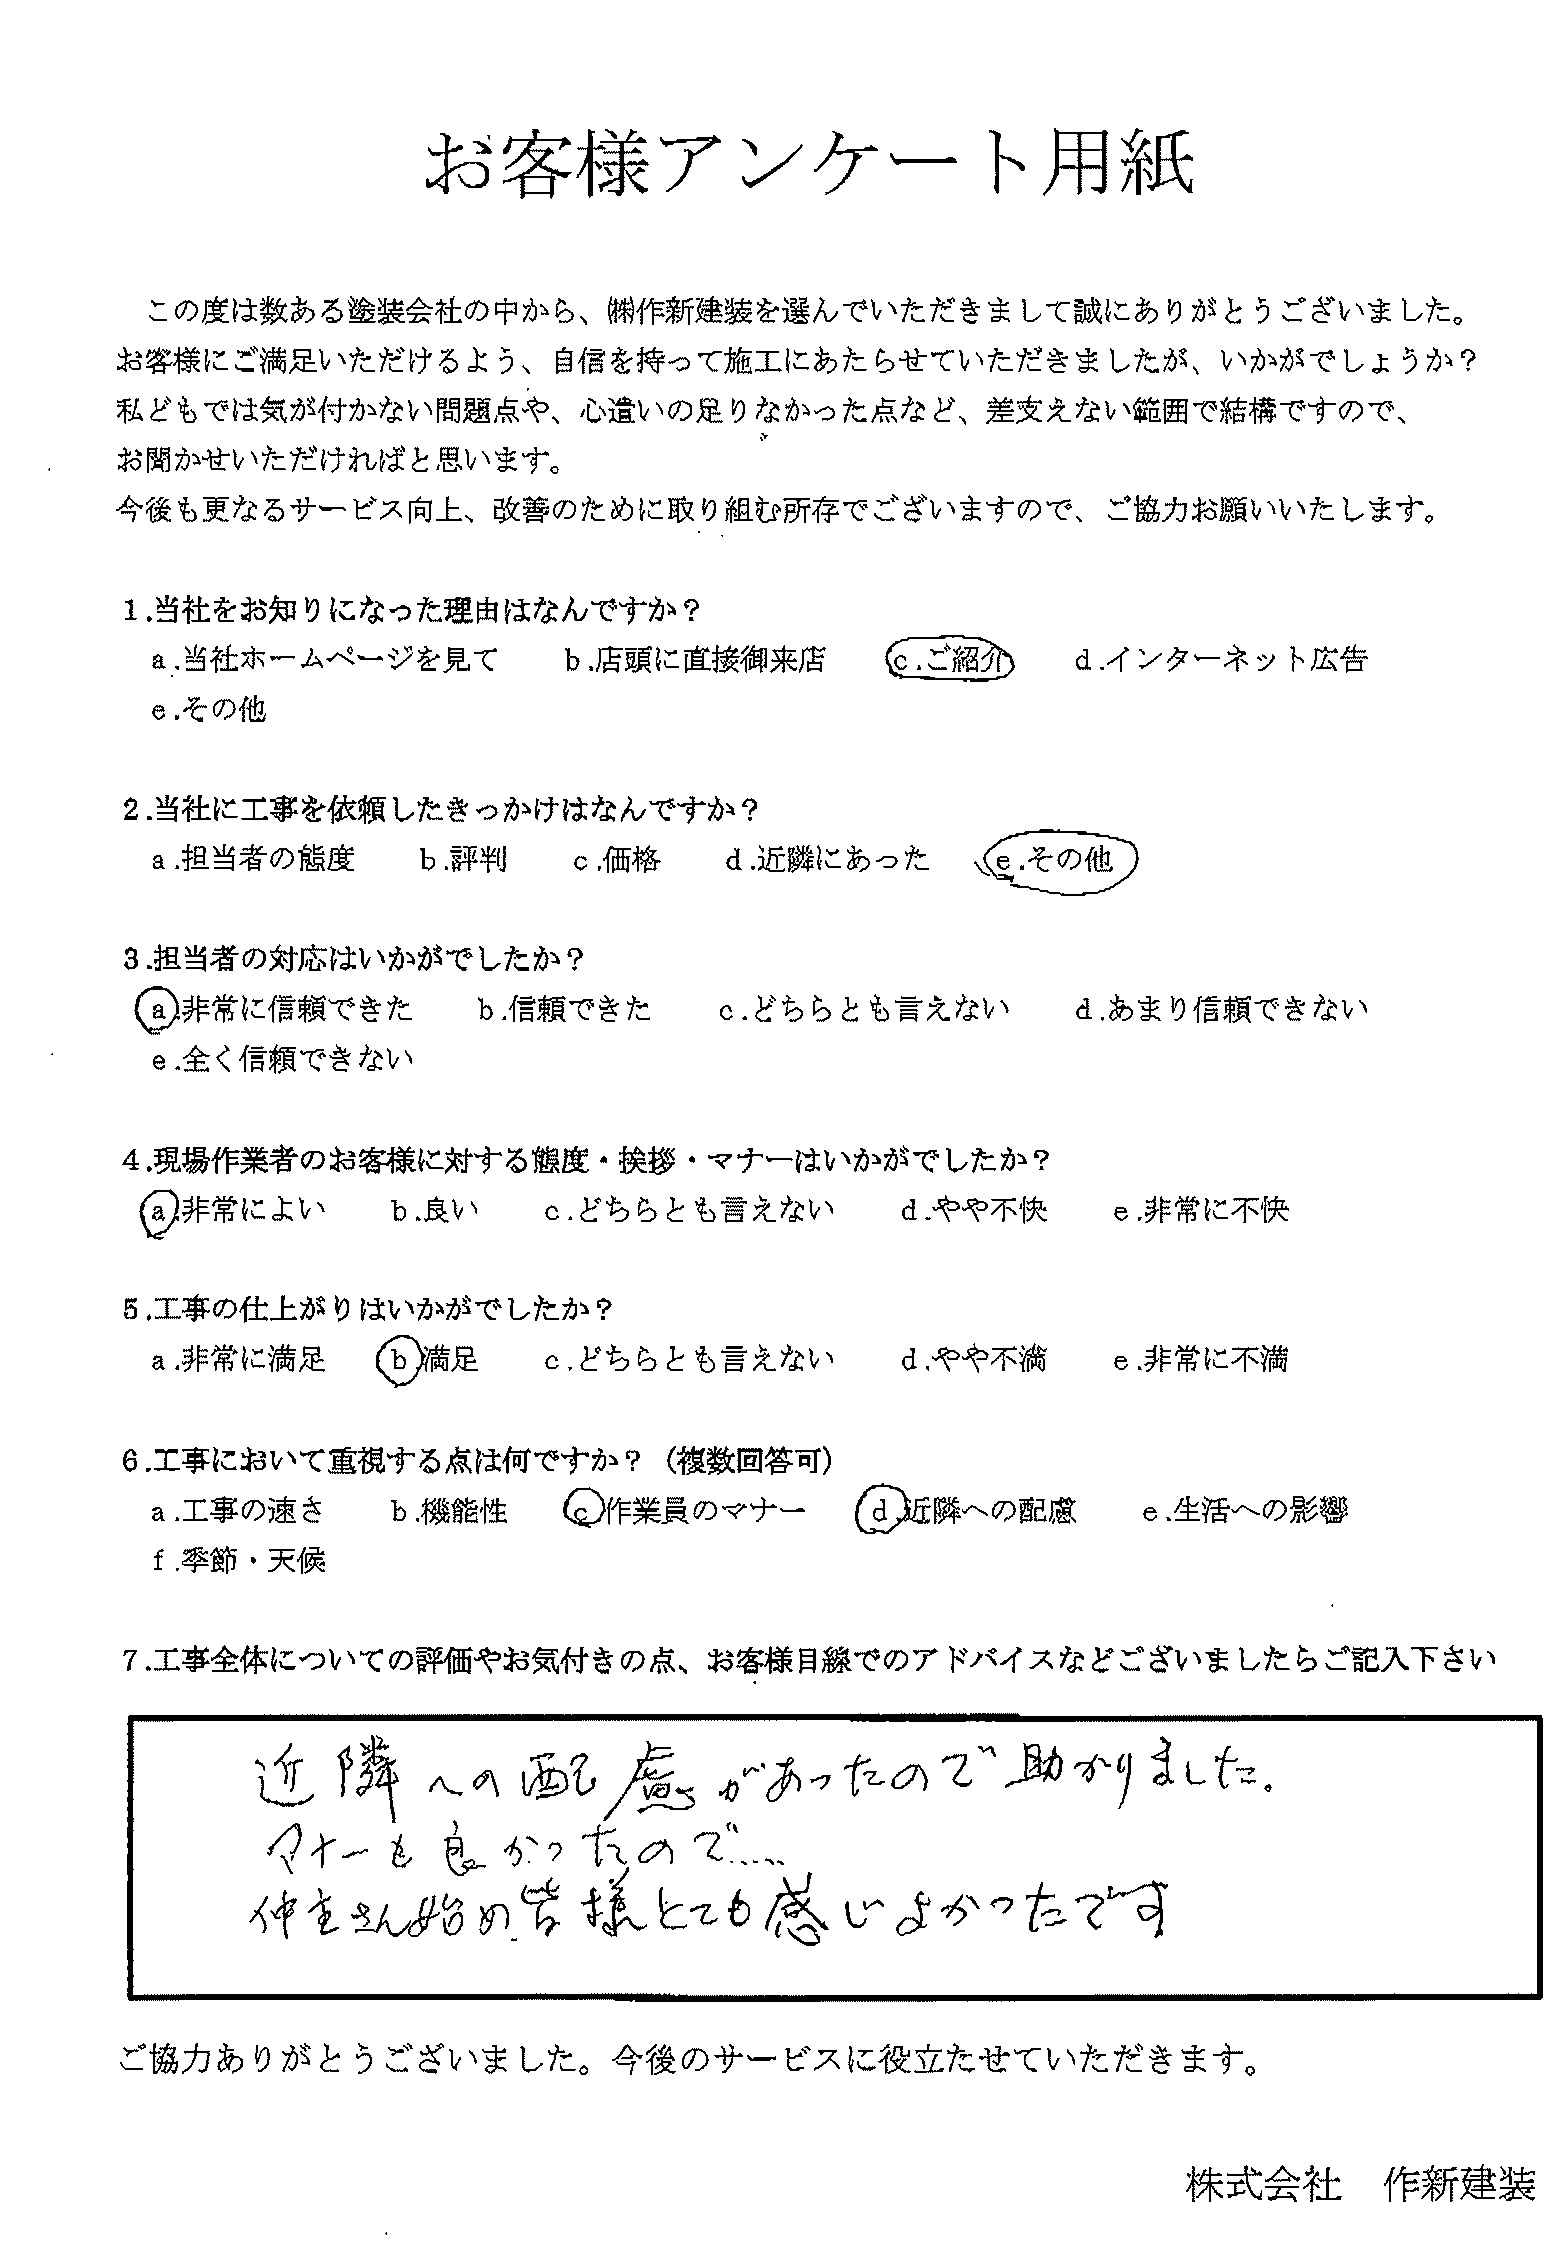 お客様アンケート用紙
この度は数ある塗装会社の中から、㈱作新建装を選んでいただきまして誠にありがとうございました。
お客様にご満足いただけるよう、自信を持って施工にあたらせていただきましたが、いかがでしょうか?
私どもでは気が付かない問題点や、心遣いの足りなかった点など、差支えない範囲で結構ですので、
お聞かせいただければと思います。
今後も更なるサービス向上、改善のために取り組む所存でございますので、ご協力お願いいたします。
1.当社をお知りになった理由はなんですか?
a.当社ホームページを見て b.店頭に直接御来店 c.ご紹介 d.インターネット広告
e.その他
2.当社に工事を依頼したきっかけはなんですか?
a.担当者の態度 b.評判 c.価格 d.近隣にあった e.その他
3.担当者の対応はいかがでしたか?
a.非常に信頼できた b.信頼できた c.どちらとも言えない d.あまり信頼できない
e.全く信頼できない
4.現場作業者のお客様に対する態度・挨拶・マナーはいかがでしたか?
a.非常によい b.良い c.どちらとも言えない d.やや不快 e.非常に不快
5.工事の仕上がりはいかがでしたか?
a.非常に満足 b.満足 c.どちらとも言えない d.やや不満 e.非常に不満
6.工事において重視する点は何ですか?(複数回答可)
a.工事の速さ b.機能性 c.作業員のマナー d.近隣への配慮 e.生活への影響
f.季節・天候
7.工事全体についての評価やお気付きの点、お客様目線でのアドバイスなどございましたらご記入下さい
近隣への配慮があったので助かりました。
マナーも良かったので.....
さん始め皆様とても感じよかったです
ご協力ありがとうございました。今後のサービスに役立たせていただきます。
株式会社 作新建装